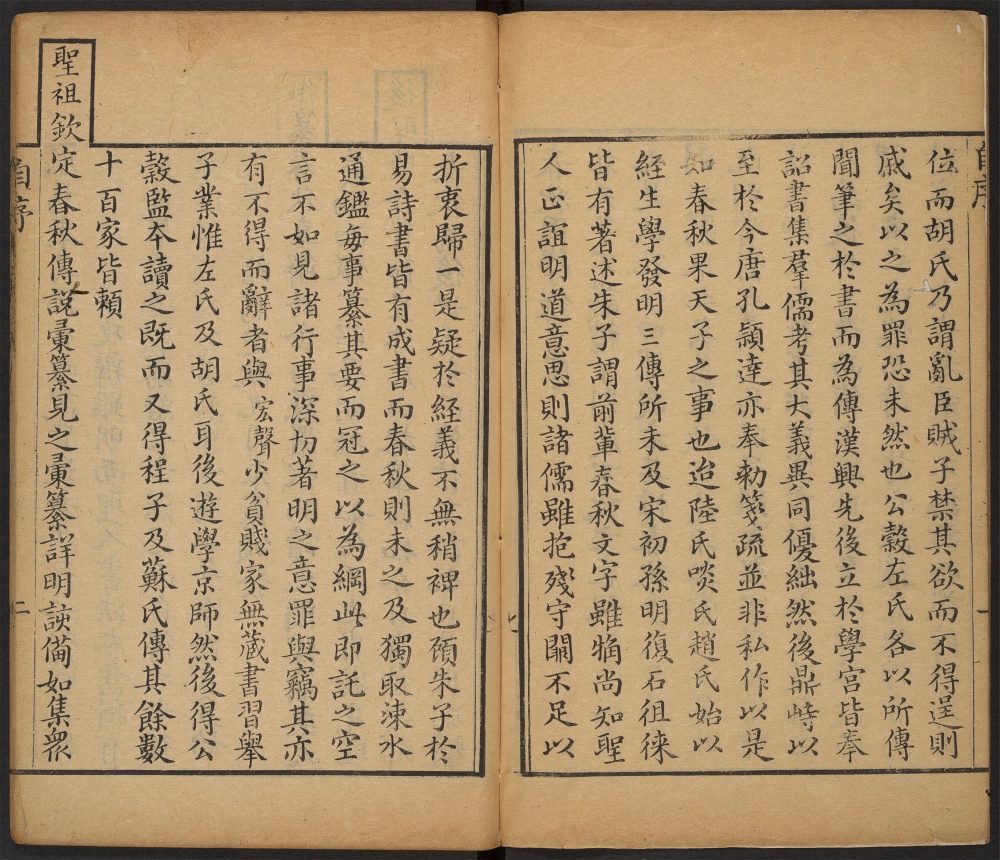 自序
位而胡氏乃謂亂臣賊子禁其欲而不得逞則
戚矣以之為罪恐未然也公糓左氏各以所傳
聞筆之於書而為傳漢興先後立於學宮皆奉
詔書集羣儒考其大義異同優絀然後鼎峙以
至於今唐孔頴逹亦奉勅箋疏並非私作以是
知春秋果天子之事也迨陸氏啖氏趙氏始以
經生學發明三傳所未及宋初孫明復石徂徠
皆有著述朱子謂前輩春秋文字雖觕尚知聖
人正誼明道意思則諸儒雖抱殘守闕不足以
折衷歸一是疑於經義不無稍裨也頋朱子於
易詩書皆有成書而春秋則未之及獨取涑水
通鑑毎事纂其要而冠之以為綱此即託之空
言不如見諸行事深切著明之意罪與竊其亦
有不得而辭者與宏聲少貧賤家無蔵書習舉
子業惟左氏及胡氏耳後遊學京師然後得公
糓監本讀之既而又得程子及蘇氏傳其餘數
十百家皆頼
聖祖欽定春秋傳說彚纂見之彚纂詳明該備如集衆
自序
二